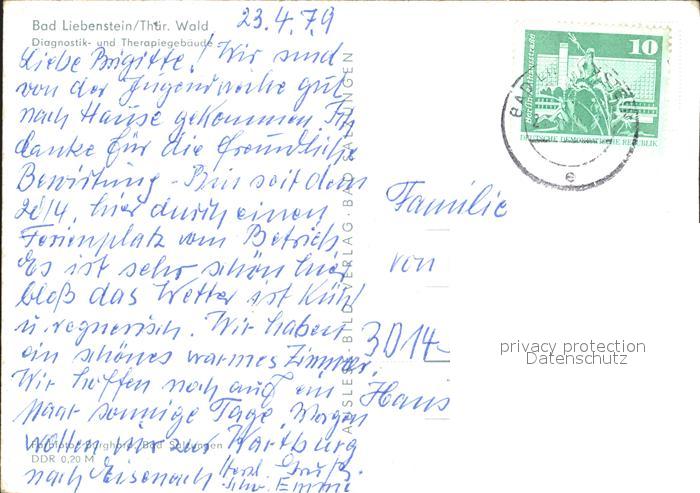 23.4.79
Bad Liebenstein/Thür. Wald
Diagnostik- und Therapiegebäude
Liebe Brigitte! Wir sind
von der Jugendweihe gut
nach Hause gekommen. Ich
danke für die freundliche
Bewirtung - Bin seit dem
20/4. hier durch einen
Ferienplatz vom Betrieb
Es ist sehr schön hier
bloß das Wetter ist kühl
u. regnerisch. Wir haben
ein schönes warmes Zimmer.
Wir hoffen noch auf ein
paar sonnige Tage. Morgen
wollen wir zur Wartburg
nach Eisenach Herzl. Grüße
Emmi
Bad Salzungen
DDR 0,20 M
AUSLESE-BILD-VERLAG · BAD SALZUNGEN
10
DEUTSCHE DEMOKRATISCHE REPUBLIK
e
Familie
von
3014
Haus
privacy protection
Datenschutz